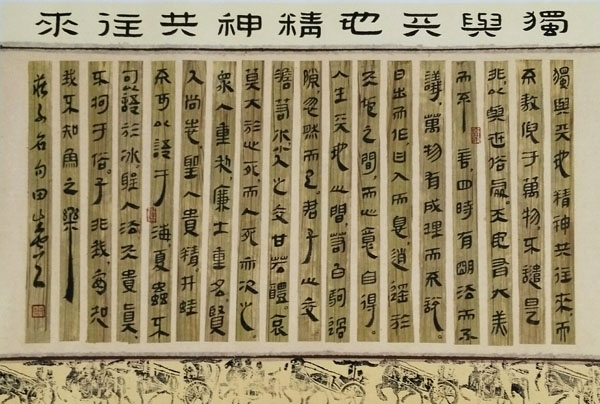 獨與天地精神共往來
獨與天地精神共往來而
不敖倪于萬物,不譴是
非,以與世俗處。天地有大美
而不言,四時有明法而不
議,萬物有成理而不說。
日出而作,日入而息,逍遙於
天地之間,而心意自得。
人生天地之間,若白駒過
隙,忽然而已。君子之交
澹若水,小人之交甘若醴。哀
莫大於心死,而人死亦次之。
眾人重利,廉士重名,賢
人尚志,聖人貴精。井蛙
不可以語于海,夏蟲不
可以語於冰。聖人法天貴真,
不拘于俗。子非我,安知
我不知魚之樂
莊子名句田